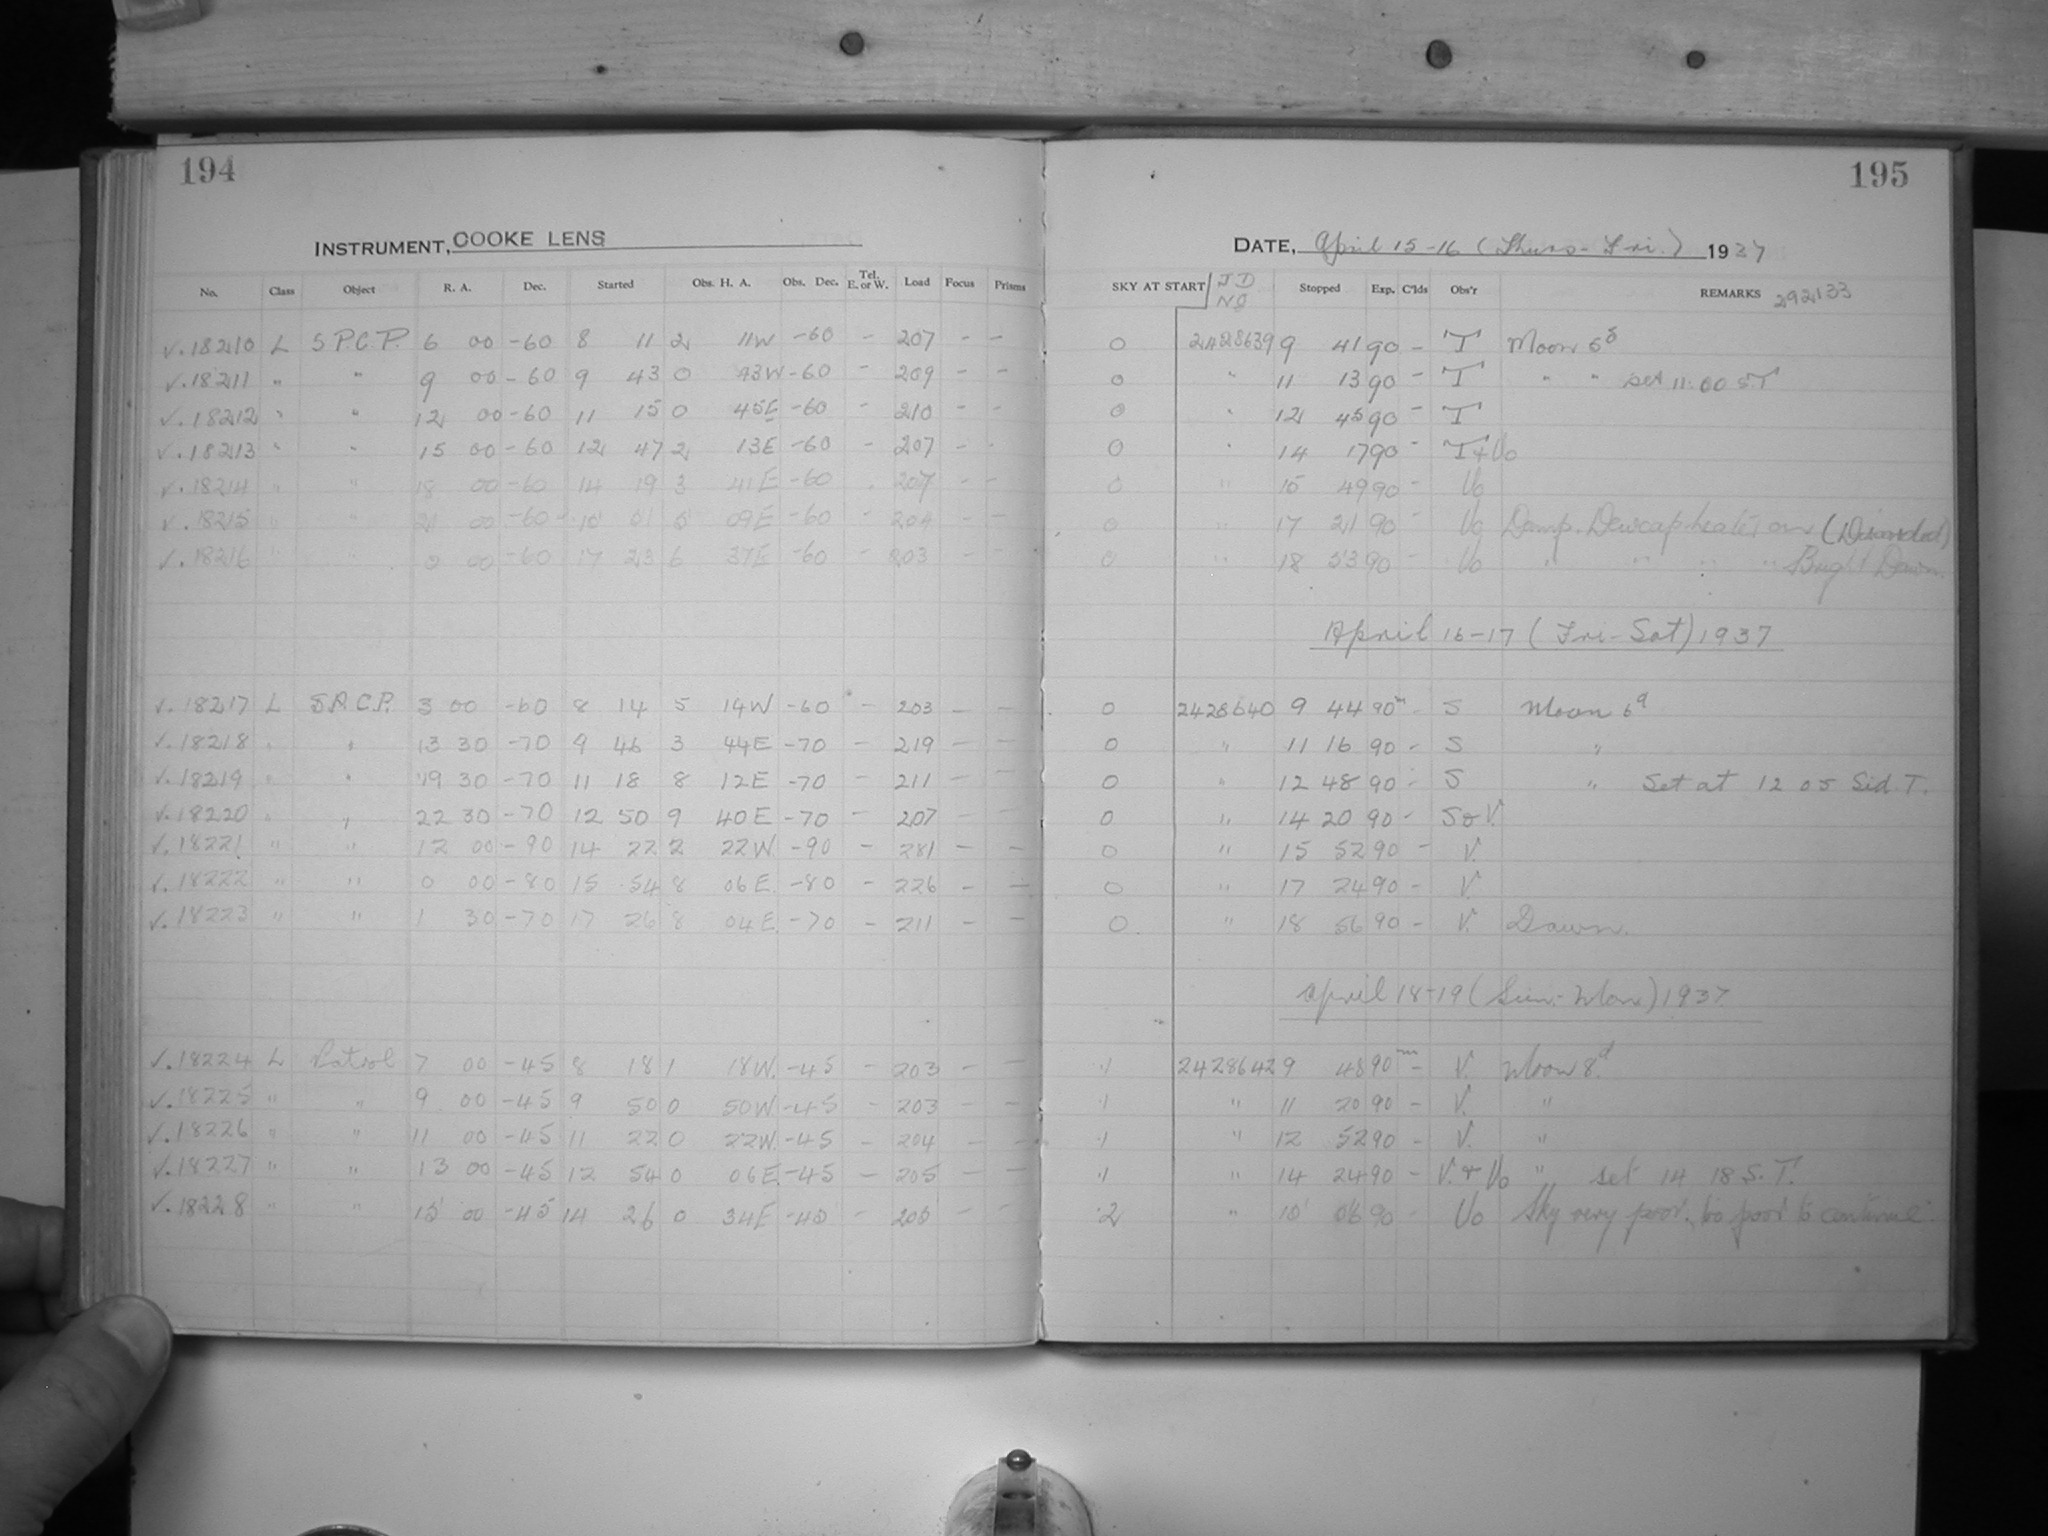 194
INSTRUMENT, COOKE LENS
No. Class Object R. A. Dec. Started Obs. H. A. Obs. Dec. Tel. E. or W. Load Focus Prisms
√.18210 L S.P.C.P. 6 00 -60 8 11 2 11W -60 - 207 - -
√.18211 " " 9 00 -60 9 43 0 43W -60 - 209 - -
√.18212 " " 12 00 -60 11 15 0 45E -60 - 210 - -
√.18213 " " 15 00 -60 12 47 2 13E -60 - 207 - -
√.18214 " " 18 00 -60 14 19 3 41E -60 - 207 - -
√.18215 " " 21 00 -60 15 51 5 09E -60 - 204 - -
√.18216 " " 0 00 -60 17 23 6 37E -60 203 - -
√.18217 L S.P.C.P. 3 00 -60 8 14 5 14W -60 - 203 - -
√.18218 " " 13 30 -70 9 46 3 44E -70 - 219 - -
√.18219 " " 19 30 -70 11 18 8 12E -70 - 211 - -
√.18220 " " 22 30 -70 12 50 9 40E -70 - 207 - -
√.18221 " " 12 00 -90 14 22 2 22W -90 - 281 - -
√.18222 " " 0 00 -80 15 54 8 06E -80 - 226 - -
√.18223 " " 1 30 -70 17 26 8 04E -70 - 211 - -
√.18224 L Patrol 7 00 -45 8 18 1 18W. -45 - 203 - -
√.18225 " " 9 00 -45 9 50 0 50W -45 - 203 - -
√.18226 " " 11 00 -45 11 22 0 22W. -45 - 204 - -
√.18227 " " 13 00 -45 12 54 0 06E -45 - 205 - -
√.18228 " " 15 00 -45 14 26 0 34E -45 - 205 - -
195
DATE, April 15-16 (Thurs-Fri.) 1937
SKY AT START JD Stopped Exp. C'lds Obs'r REMARKS 292133
0 2428639 9 41 90 - T Moon 5d
0 " 11 13 90 - T " " set 11.00 S.T
0 " 12 45 90 - T
0 " 14 17 90 - T+Vo
0 " 15 49 90 - Vo
0 " 17 21 90 - Vo Damp. Dewcap heater on (Discarded)
0 " 18 53 90 - Vo " " " " Bright Dawn.
April 16-17 (Fri-Sat) 1937
0 2428640 9 44 90m - S Moon 6d
0 " 11 16 90 - S "
0 " 12 48 90 - S " Set at 12 05 Sid. T.
0 " 14 20 90 - S & V.
0 " 15 52 90 - V.
0 " 17 24 90 - V.
0 " 18 56 90 - V. Dawn.
April 18-19 (Sun.-Mon) 1937.
.1 2428642 9 48 90m - V. Moon 8d.
.1 " 11 20 90 - V. "
.1 " 12 52 90 - V. "
.1 " 14 24 90 - V. & Vo " set 14 18 S.T.
.2 " 15 56 90 - Vo Sky very poor, too poor to continue.